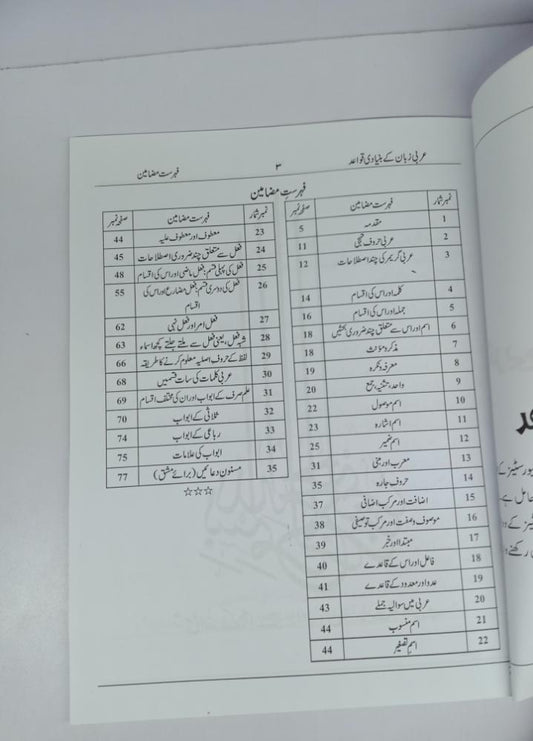 عربی زبان کے بنیادی قواعد ۳ فہرست مضامین
فہرست مضامین
نمبر شمار فہرست مضامین صفحہ نمبر
1 مقدمہ 5
2 عربی حروف تہجی 11
3 عربی گریمر کی چند اصطلاحات 12
4 کلمہ اور اس کی اقسام 14
5 جملہ اور اس کی اقسام 16
6 اسم اور اس سے متعلق چند ضروری بحثیں 18
7 مذکر و مؤنث 18
8 معرفہ و نکرہ 19
9 واحد، تثنیہ، جمع 20
10 اسم موصول 22
11 اسم اشارہ 23
12 اسم ضمیر 25
13 معرب اور مبنی 31
14 حروف جارہ 35
15 اضافت اور مرکب اضافی 37
16 موصوف وصفت اور مرکب توصیفی 38
17 مبتدا اور خبر 39
18 فاعل اور اس کے قاعدے 40
19 عدد اور معدود کے قاعدے 41
20 عربی میں سوالیہ جملے 43
21 اسم منسوب 44
22 اسم تصغیر 44
نمبر شمار فہرست مضامین صفحہ نمبر
23 معطوف اور معطوف علیہ 44
24 فعل سے متعلق چند ضروری اصطلاحات 45
25 فعل کی پہلی قسم: فعل ماضی اور اس کی اقسام 48
26 فعل کی دوسری قسم: فعل مضارع اور اس کی 55
اقسام
27 فعل امر اور فعل نہی 62
28 شبہ فعل، یعنی فعل سے ملتے جلتے کچھ اسماء 63
29 لفظ کے حروف اصلیہ معلوم کرنے کا طریقہ 66
30 عربی کلمات کی سات قسمیں 68
31 علم صرف کے ابواب اور ان کی مختلف اقسام 69
32 ثلاثی کے ابواب 70
33 رباعی کے ابواب 74
34 ابواب کی علامات 75
35 مسنون دعائیں (برائے مشق) 77
☆☆☆